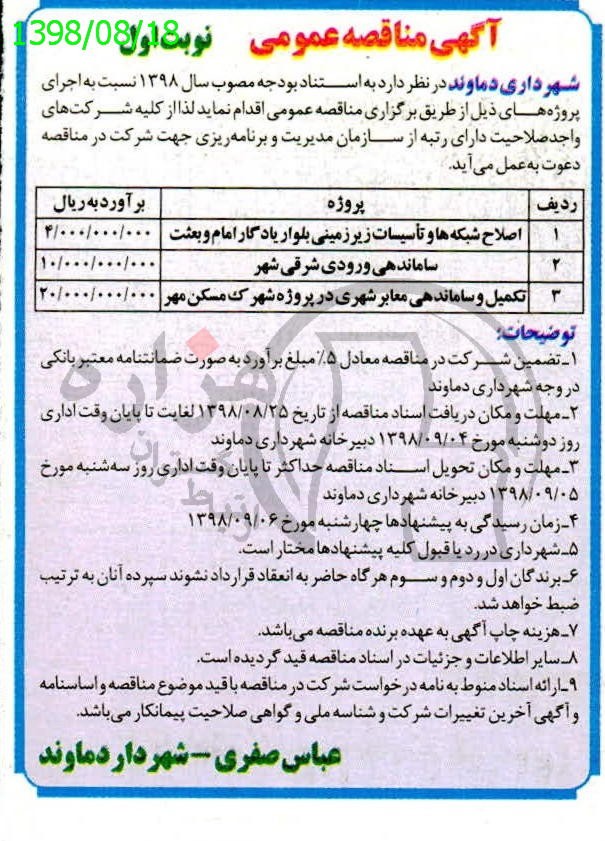 1398/08/18
آگهی مناقصه عمومی نوبت اول
شهرداری دماوند در نظر دارد به استناد بودجه مصوب سال ۱۳۹۸ نسبت به اجرای
پروژه‌های ذیل از طریق برگزاری مناقصه عمومی اقدام نماید لذا از کلیه شرکت‌های
واجد صلاحیت دارای رتبه از سازمان مدیریت و برنامه‌ریزی جهت شرکت در مناقصه
دعوت به عمل می‌آید.
ردیف پروژه برآورد به ریال
۱ اصلاح شبکه‌ها و تأسیسات زیرزمینی بلوار یادگار امام و بعثت ۴/۰۰۰/۰۰۰/۰۰۰
۲ ساماندهی ورودی شرقی شهر ۱۰/۰۰۰/۰۰۰/۰۰۰
۳ تکمیل و ساماندهی معابر شهری در پروژه شهرک مسکن مهر ۲۰/۰۰۰/۰۰۰/۰۰۰
توضیحات:
۱ـ تضمین شرکت در مناقصه معادل ۵٪ مبلغ برآورد به صورت ضمانتنامه معتبر بانکی
در وجه شهرداری دماوند
۲ـ مهلت و مکان دریافت اسناد مناقصه از تاریخ ۱۳۹۸/۰۸/۲۵ لغایت تا پایان وقت اداری
روز دوشنبه مورخ ۱۳۹۸/۰۹/۰۴ دبیرخانه شهرداری دماوند
۳ـ مهلت و مکان تحویل اسناد مناقصه حداکثر تا پایان وقت اداری روز سه‌شنبه مورخ
۱۳۹۸/۰۹/۰۵ دبیرخانه شهرداری دماوند
۴ـ زمان رسیدگی به پیشنهادها چهارشنبه مورخ ۱۳۹۸/۰۹/۰۶
۵ـ شهرداری در رد یا قبول کلیه پیشنهادها مختار است.
۶ـ برندگان اول و دوم و سوم هرگاه حاضر به انعقاد قرارداد نشوند سپرده آنان به ترتیب
ضبط خواهد شد.
۷ـ هزینه چاپ آگهی به عهده برنده مناقصه می‌باشد.
۸ـ سایر اطلاعات و جزئیات در اسناد مناقصه قید گردیده است.
۹ـ ارائه اسناد منوط به نامه درخواست شرکت در مناقصه با قید موضوع مناقصه و اساسنامه
و آگهی آخرین تغییرات شرکت و شناسه ملی و گواهی صلاحیت پیمانکار می‌باشد.
عباس صفری - شهردار دماوند
هزاره